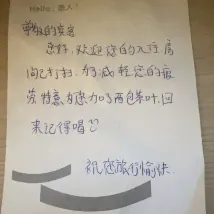 Hello, 旅人!
尊敬的宾客
您好,欢迎您的入住,房
间已打扫,为减轻您的疲
劳,特意为您加了两包茶叶,回
来记得喝
祝您旅行愉快.